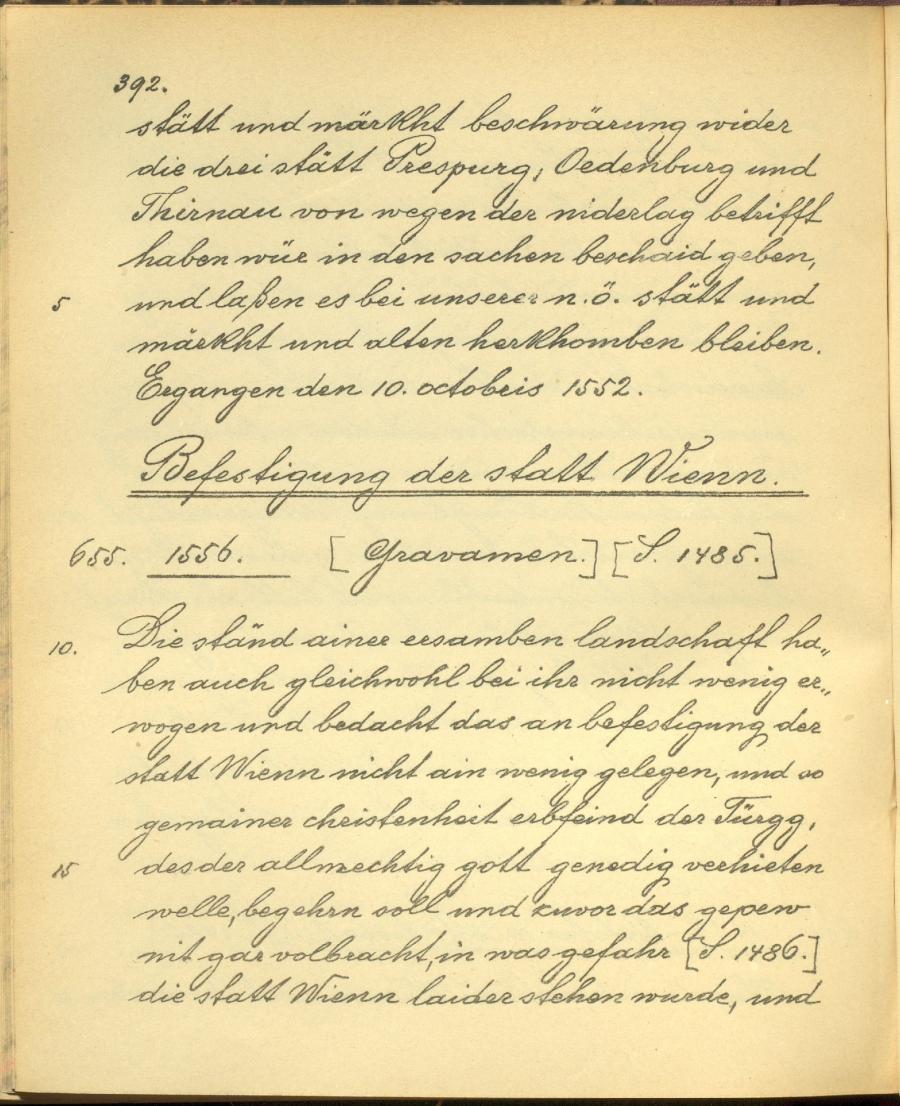 392.
stätt und märkht beschwärung wider
die drei stätt Prespurg, Oedenburg und
Thirnau von wegen der niderlag betrifft
haben wür in den sachen beschaid geben,
5 und laßen es bei unserer n.ö. stätt und
märkht und alten herkhomben bleiben.
Ergangen den 10. octobris 1552.
Befestigung der statt Wienn.
655. 1556. [Gravamen.] [S. 1485.]
10. Die ständ ainer ersamben landschaft ha„
ben auch gleichwohl bei ihr nicht wenig er„
wogen und bedacht das an befestigung der
statt Wienn nicht ain wenig gelegen, und so
gemainer christenheit erbfeind der Türgg,
15 des der allmechtig gott genedig verhieten
welle, begehrn soll und zuvor das gepew
nit gar volbracht, in was gefahr [S. 1486.]
die statt Wienn laider stehen wurde, und